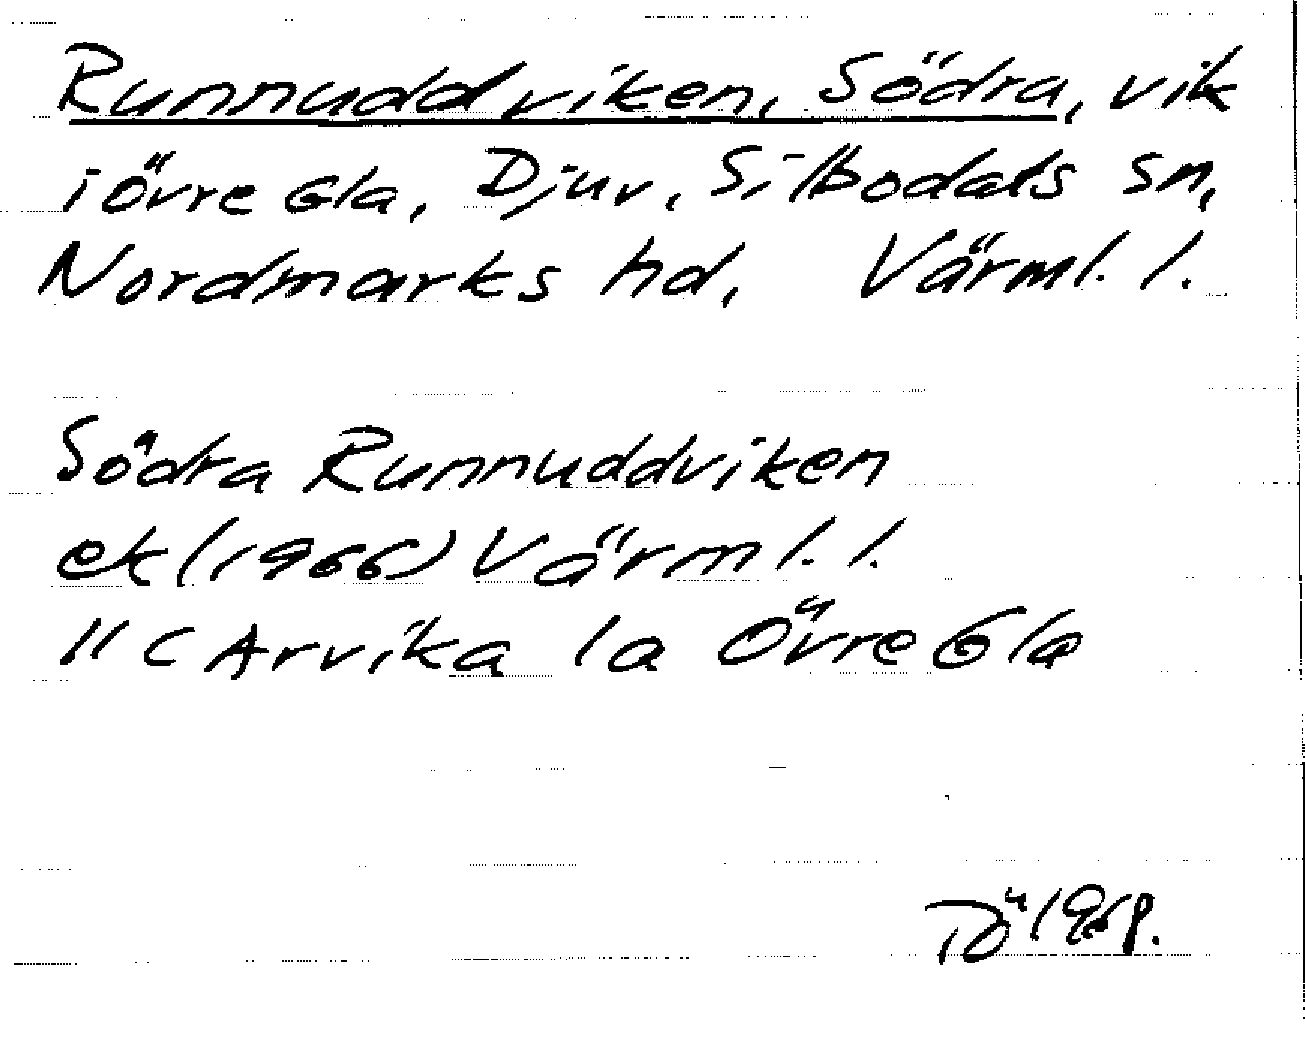 Runnuddviken, Södra, vik
i Övre Gla, Djur, Silbodals sn,
Nordmarks hd, Värml. l.
Södra Runnuddviken
ek (1966) Värml. l.
11C Arvika 1a Övre Gla